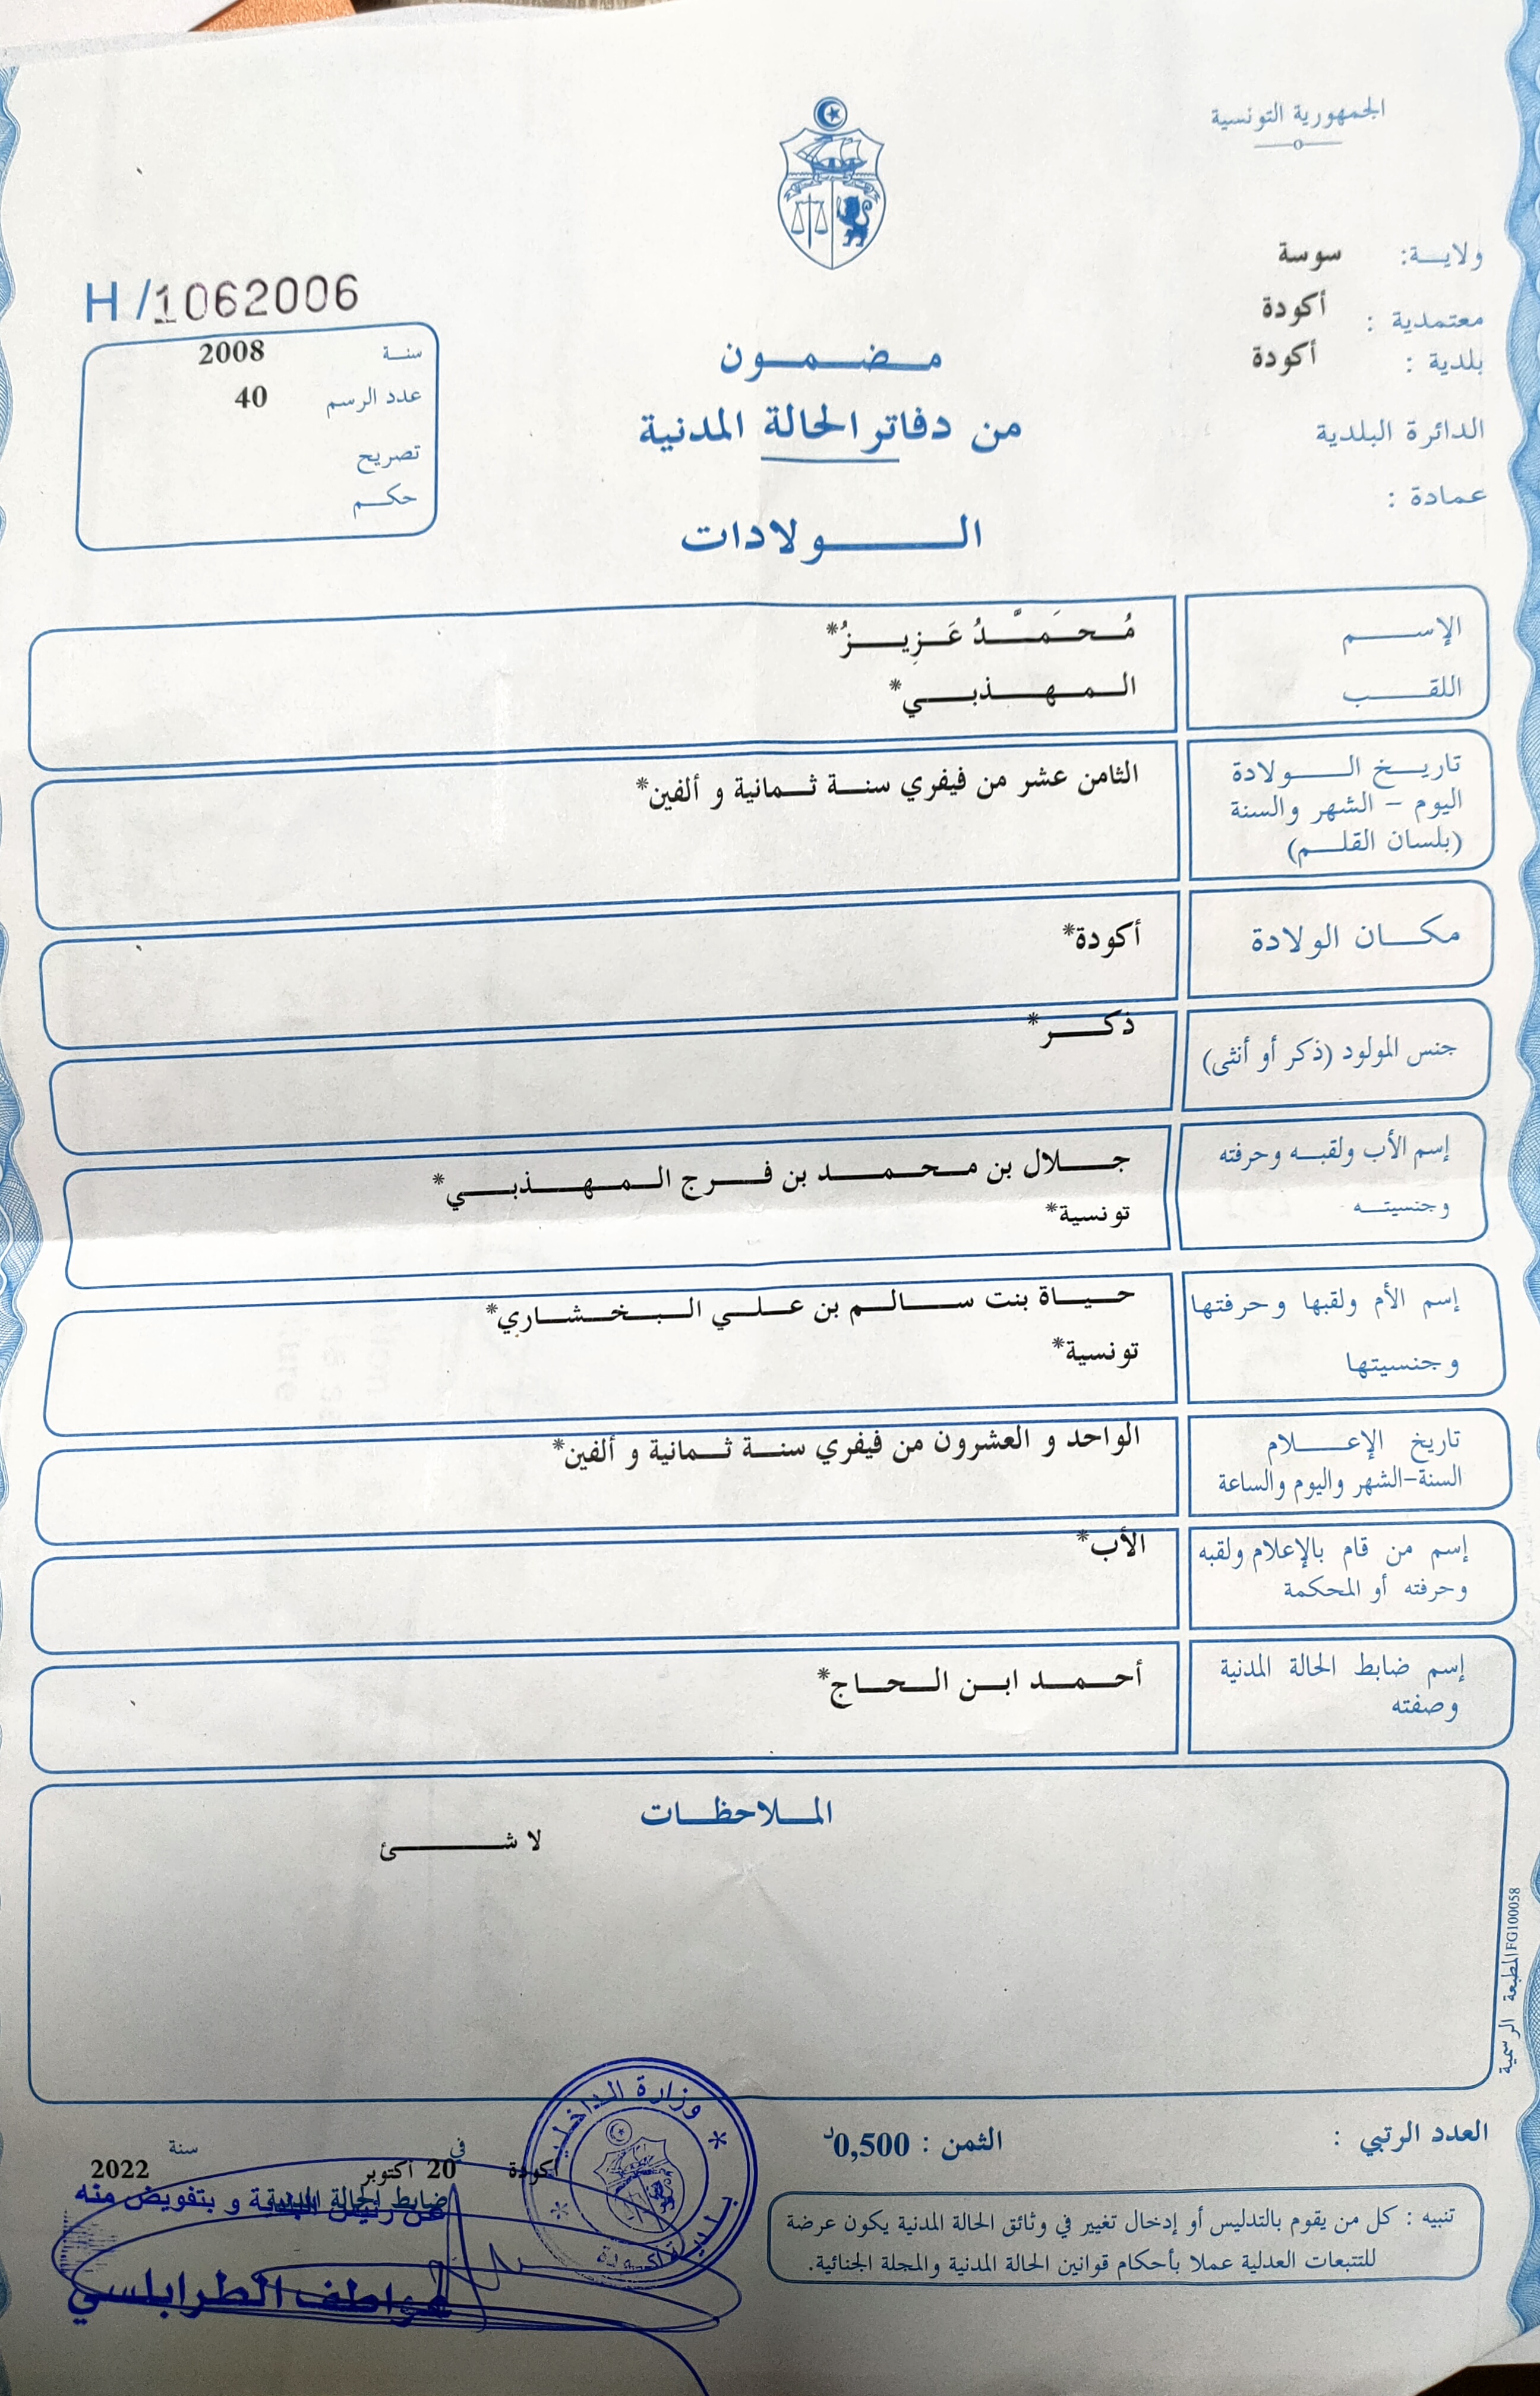 الجمهورية التونسية
ولايـــة: سوسة
معتمدية : أكودة
بلدية : أكودة
الدائرة البلدية
عمادة :
H/1062006
سنـة 2008
عدد الرسم 40
تصريح
حكـــم
مـــضـــمـــون
من دفاتر الحالة المدنية
الـــــولادات
الإســـــم
مُـحـَمـَّـدُ عَـزِيـــزُ*
اللقــــب
الـمـهـــذبـــي*
تاريـــخ الــــولادة
اليوم - الشهر والسنة
(بلسان القلــم)
الثامن عشر من فيفري سنـة ثـمانية و ألفين*
مكـــان الولادة
أكودة*
جنس المولود (ذكر أو أنثى)
ذكـــر*
إسم الأب ولقبـه وحرفته
وجنسيتـــه
جـــلال بن مـحـمـــد بن فـــرج الـمـهـــذبـــي*
تونسية*
إسم الأم ولقبها وحرفتها
وجنسيتها
حـيـاة بنت ســـالـــم بن عـلـــي الـبـخـشـاري*
تونسية*
تاريخ الإعـــــلام
السنة-الشهر واليوم والساعة
الواحد و العشرون من فيفري سنـة ثـمانية و ألفين*
إسم من قام بالإعلام ولقبه
وحرفته أو المحكمة
الأب*
إسم ضابط الحالة المدنية
وصفته
أحـمـــد ابـــن الـحـــاج*
المـــلاحظـــات
لا شـــــئ
المطبعة الرسمية FG100058
العدد الرتبي :
الثمن : 0,500د
أكودة في 20 أكتوبر سنة 2022
ضابط الحالة المدنية
عن رئيس البلدية و بتفويض منه
عواطف الطرابلسي
وزارة الداخلية
بلدية أكودة
تنبيه : كل من يقوم بالتدليس أو إدخال تغيير في وثائق الحالة المدنية يكون عرضة
للتتبعات العدلية عملا بأحكام قوانين الحالة المدنية والمجلة الجنائية.